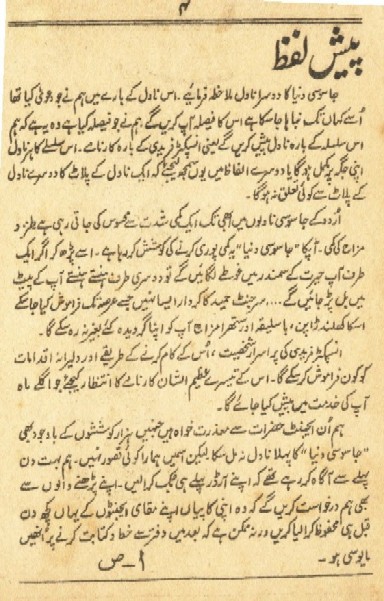 ۴
پیش لفظ
جاسوسی دنیا کا دوسرا ناول ملاحظہ فرمائیے۔ اس ناول کے بارے میں ہم نے جو دعویٰ کیا تھا
اُسے کہاں تک نباہا جا سکا ہے اس کا فیصلہ آپ کریں گے۔ ہم نے جو فیصلہ کیا ہے وہ یہ ہے کہ ہم
اس سلسلہ کے بارہ ناول پیش کریں گے یعنی انسپکٹر فریدی کے بارہ کارنامے۔ اس سلسلے کا ہر ناول
اپنی جگہ پر مکمل ہو گا یا دوسرے الفاظ میں یوں سمجھ لیجئے کہ ایک ناول کے پلاٹ کا دوسرے ناول
کے پلاٹ سے کوئی تعلق نہ ہو گا۔
اُردو کے جاسوسی ناولوں میں ابھی تک ایک کمی شدت سے محسوس کی جاتی رہی ہے طنز و
مزاح کی کمی۔ آپکا "جاسوسی دنیا" یہ کمی پوری کرنے کی کوشش کر رہا ہے۔ اسے پڑھ کر اگر ایک
طرف آپ حیرت کے سمندر میں غوطے لگائیں گے تو دوسری طرف ہنستے ہنستے آپ کے پیٹ
میں بل پڑ جائیں گے .... سرجنٹ حمید کا کردار ایسا نہیں جسے عرصہ تک فراموش کیا جا سکے
اس کا کھلنڈرا پن، با سلیقہ اور ستھرا مزاح آپ کو اپنا گرویدہ کئے بغیر نہ رہ سکے گا۔
انسپکٹر فریدی کی پراسرار شخصیت، اُس کے کام کرنے کے طریقے اور دلیرانہ اقدامات
کو کون فراموش کر سکے گا۔ اس کے تیسرے عظیم الشان کارنامے کا انتظار کیجئے جو اگلے ماہ
آپ کی خدمت میں پیش کیا جائے گا۔
ہم اُن ایجنٹ حضرات سے معذرت خواہ ہیں جنہیں ہزار کوششوں کے باوجود بھی
"جاسوسی دنیا" کا پہلا ناول نہ مل سکا لیکن اسمیں ہمارا کوئی قصور نہیں۔ ہم بہت دن
پہلے سے آگاہ کر رہے تھے کہ اپنے آرڈر پہلے ہی بک کرالیں۔ اپنے پڑھنے والوں سے
بھی ہم درخواست کریں گے کہ وہ اپنی کاپیاں اپنے مقامی ایجنٹوں کے یہاں کچھ دن
قبل ہی محفوظ کرالیا کریں ورنہ ممکن ہے کہ بعد میں دفتر سے خط و کتابت کرنے پر انھیں
مایوسی ہو۔
ا۔ ص